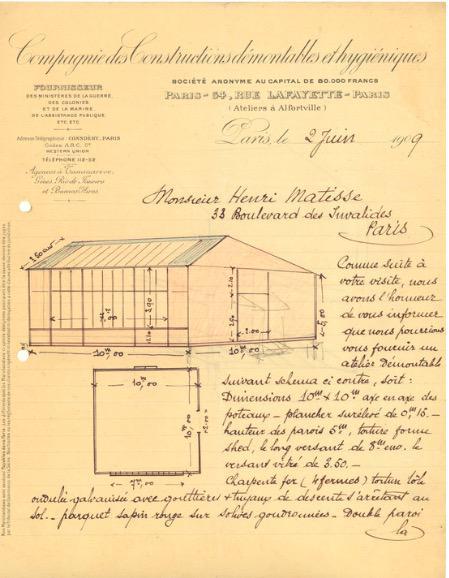 Compagnie des Constructions démontables et hygiéniques
SOCIÉTÉ ANONYME AU CAPITAL DE 80.000 FRANCS
PARIS - 54, RUE LAFAYETTE - PARIS
(Ateliers à Alfortville)
FOURNISSEUR
DES MINISTÈRES DE LA GUERRE,
DES COLONIES
ET DE LA MARINE,
DE L'ASSISTANCE PUBLIQUE,
ETC. ETC.
Adresse Télégraphique:
PARIS
Codes A.B.C.
WESTERN UNION
TÉLÉPHONE 112-52
Agences à
et Buenos Aires
Paris, le 2 Juin 1909
Monsieur Henri Matisse
33 Boulevard des Invalides
Paris
Comme suite à
votre visite, nous
avons l'honneur
de vous informer
que nous pourrions
vous fournir un
atelier Démontable
suivant schema ci contre, soit:
Dimensions 10m × 10m axe en axe des
poteaux - plancher surélevé de 0m,15. -
hauteur des parois 5m, toiture forme
shed, le long versant de 8m eno. le
versant vitré de 3.50. -
Charpente fer (4 fermes) toiture tôle
ondulée galvanisée avec gouttières & tuyaux de descente s'arrêtant au
sol. - parquet sapin rouge sur solives goudronnées - Double paroi
la
3.50
2.90
10m,00
10m,00
5,00
10m,00